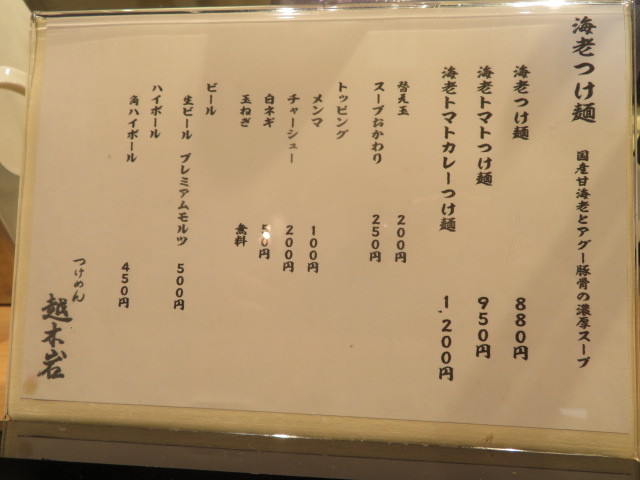 海老つけ麺 国産甘海老とアグー豚骨の濃厚スープ
海老つけ麺 880円
海老トマトつけ麺 950円
海老トマトカレーつけ麺 1,200円
替え玉 200円
スープおかわり 250円
トッピング
メンマ 100円
チャーシュー 200円
白ネギ 50円
玉ねぎ 無料
ビール
生ビール プレミアムモルツ 500円
ハイボール
角ハイボール 450円
つけめん 越木岩